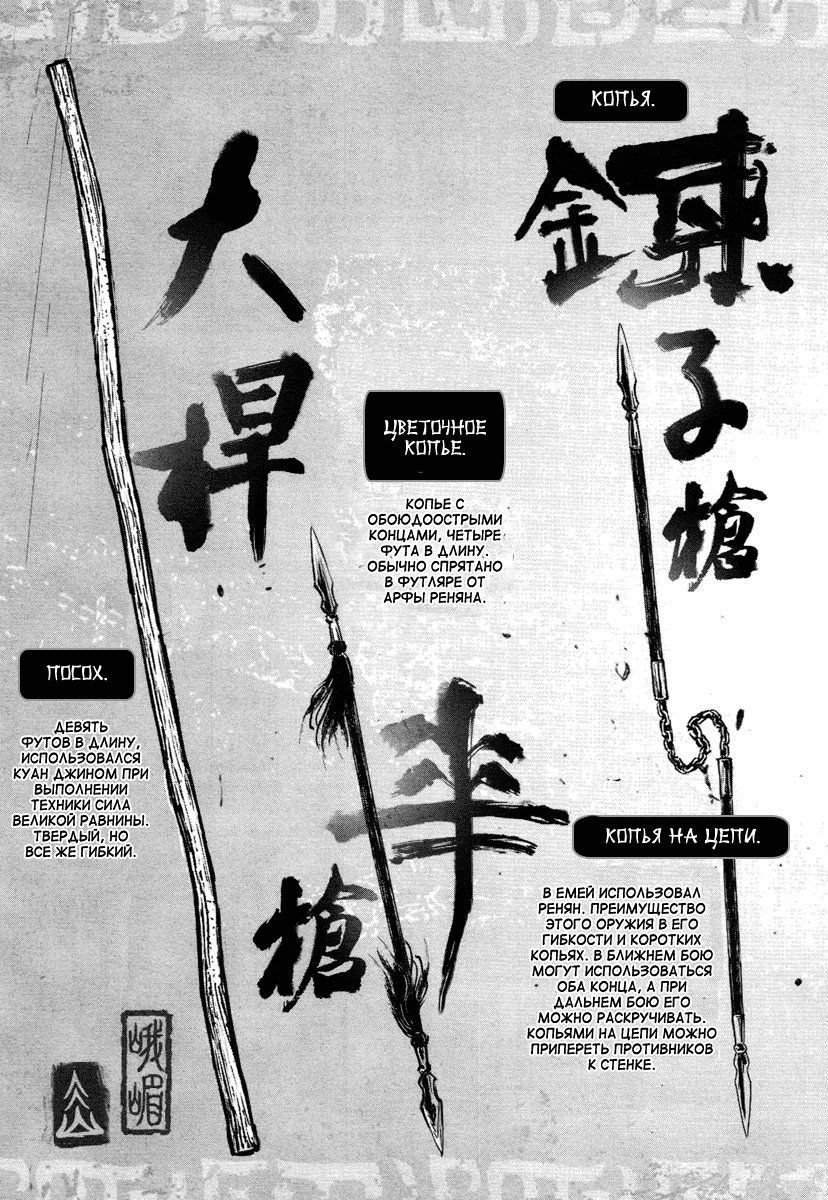 КОПЬЯ.
大桿
鏈子槍
ЦВЕТОЧНОЕ
КОПЬЕ.
КОПЬЕ С
ОБОЮДООСТРЫМИ
КОНЦАМИ, ЧЕТЫРЕ
ФУТА В ДЛИНУ.
ОБЫЧНО СПРЯТАНО
В ФУТЛЯРЕ ОТ
АРФЫ РЕНЯНА.
ПОСОХ.
ДЕВЯТЬ
ФУТОВ В ДЛИНУ,
ИСПОЛЬЗОВАЛСЯ
КУАН ДЖИНОМ ПРИ
ВЫПОЛНЕНИИ
ТЕХНИКИ СИЛА
ВЕЛИКОЙ РАВНИНЫ.
ТВЕРДЫЙ, НО
ВСЕ ЖЕ ГИБКИЙ.
半槍
КОПЬЯ НА ЦЕПИ.
В ЕМЕЙ ИСПОЛЬЗОВАЛ
РЕНЯН. ПРЕИМУЩЕСТВО
ЭТОГО ОРУЖИЯ В ЕГО
ГИБКОСТИ И КОРОТКИХ
КОПЬЯХ. В БЛИЖНЕМ БОЮ
МОГУТ ИСПОЛЬЗОВАТЬСЯ
ОБА КОНЦА, А ПРИ
ДАЛЬНЕМ БОЮ ЕГО
МОЖНО РАСКРУЧИВАТЬ.
КОПЬЯМИ НА ЦЕПИ МОЖНО
ПРИПЕРЕТЬ ПРОТИВНИКОВ
К СТЕНКЕ.
峨嵋